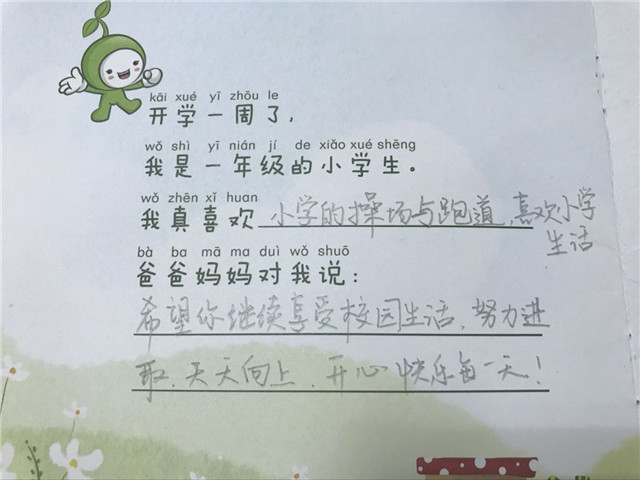 kāi xué yī zhōu le
开学一周了，
wǒ shì yī nián jí de xiǎo xué shēng
我是一年级的小学生。
wǒ zhēn xǐ huan
我真喜欢 小学的操场与跑道，喜欢小学
生活
bà ba mā ma duì wǒ shuō
爸爸妈妈对我说：
希望你继续享受校园生活，努力进
取，天天向上，开心快乐每一天！